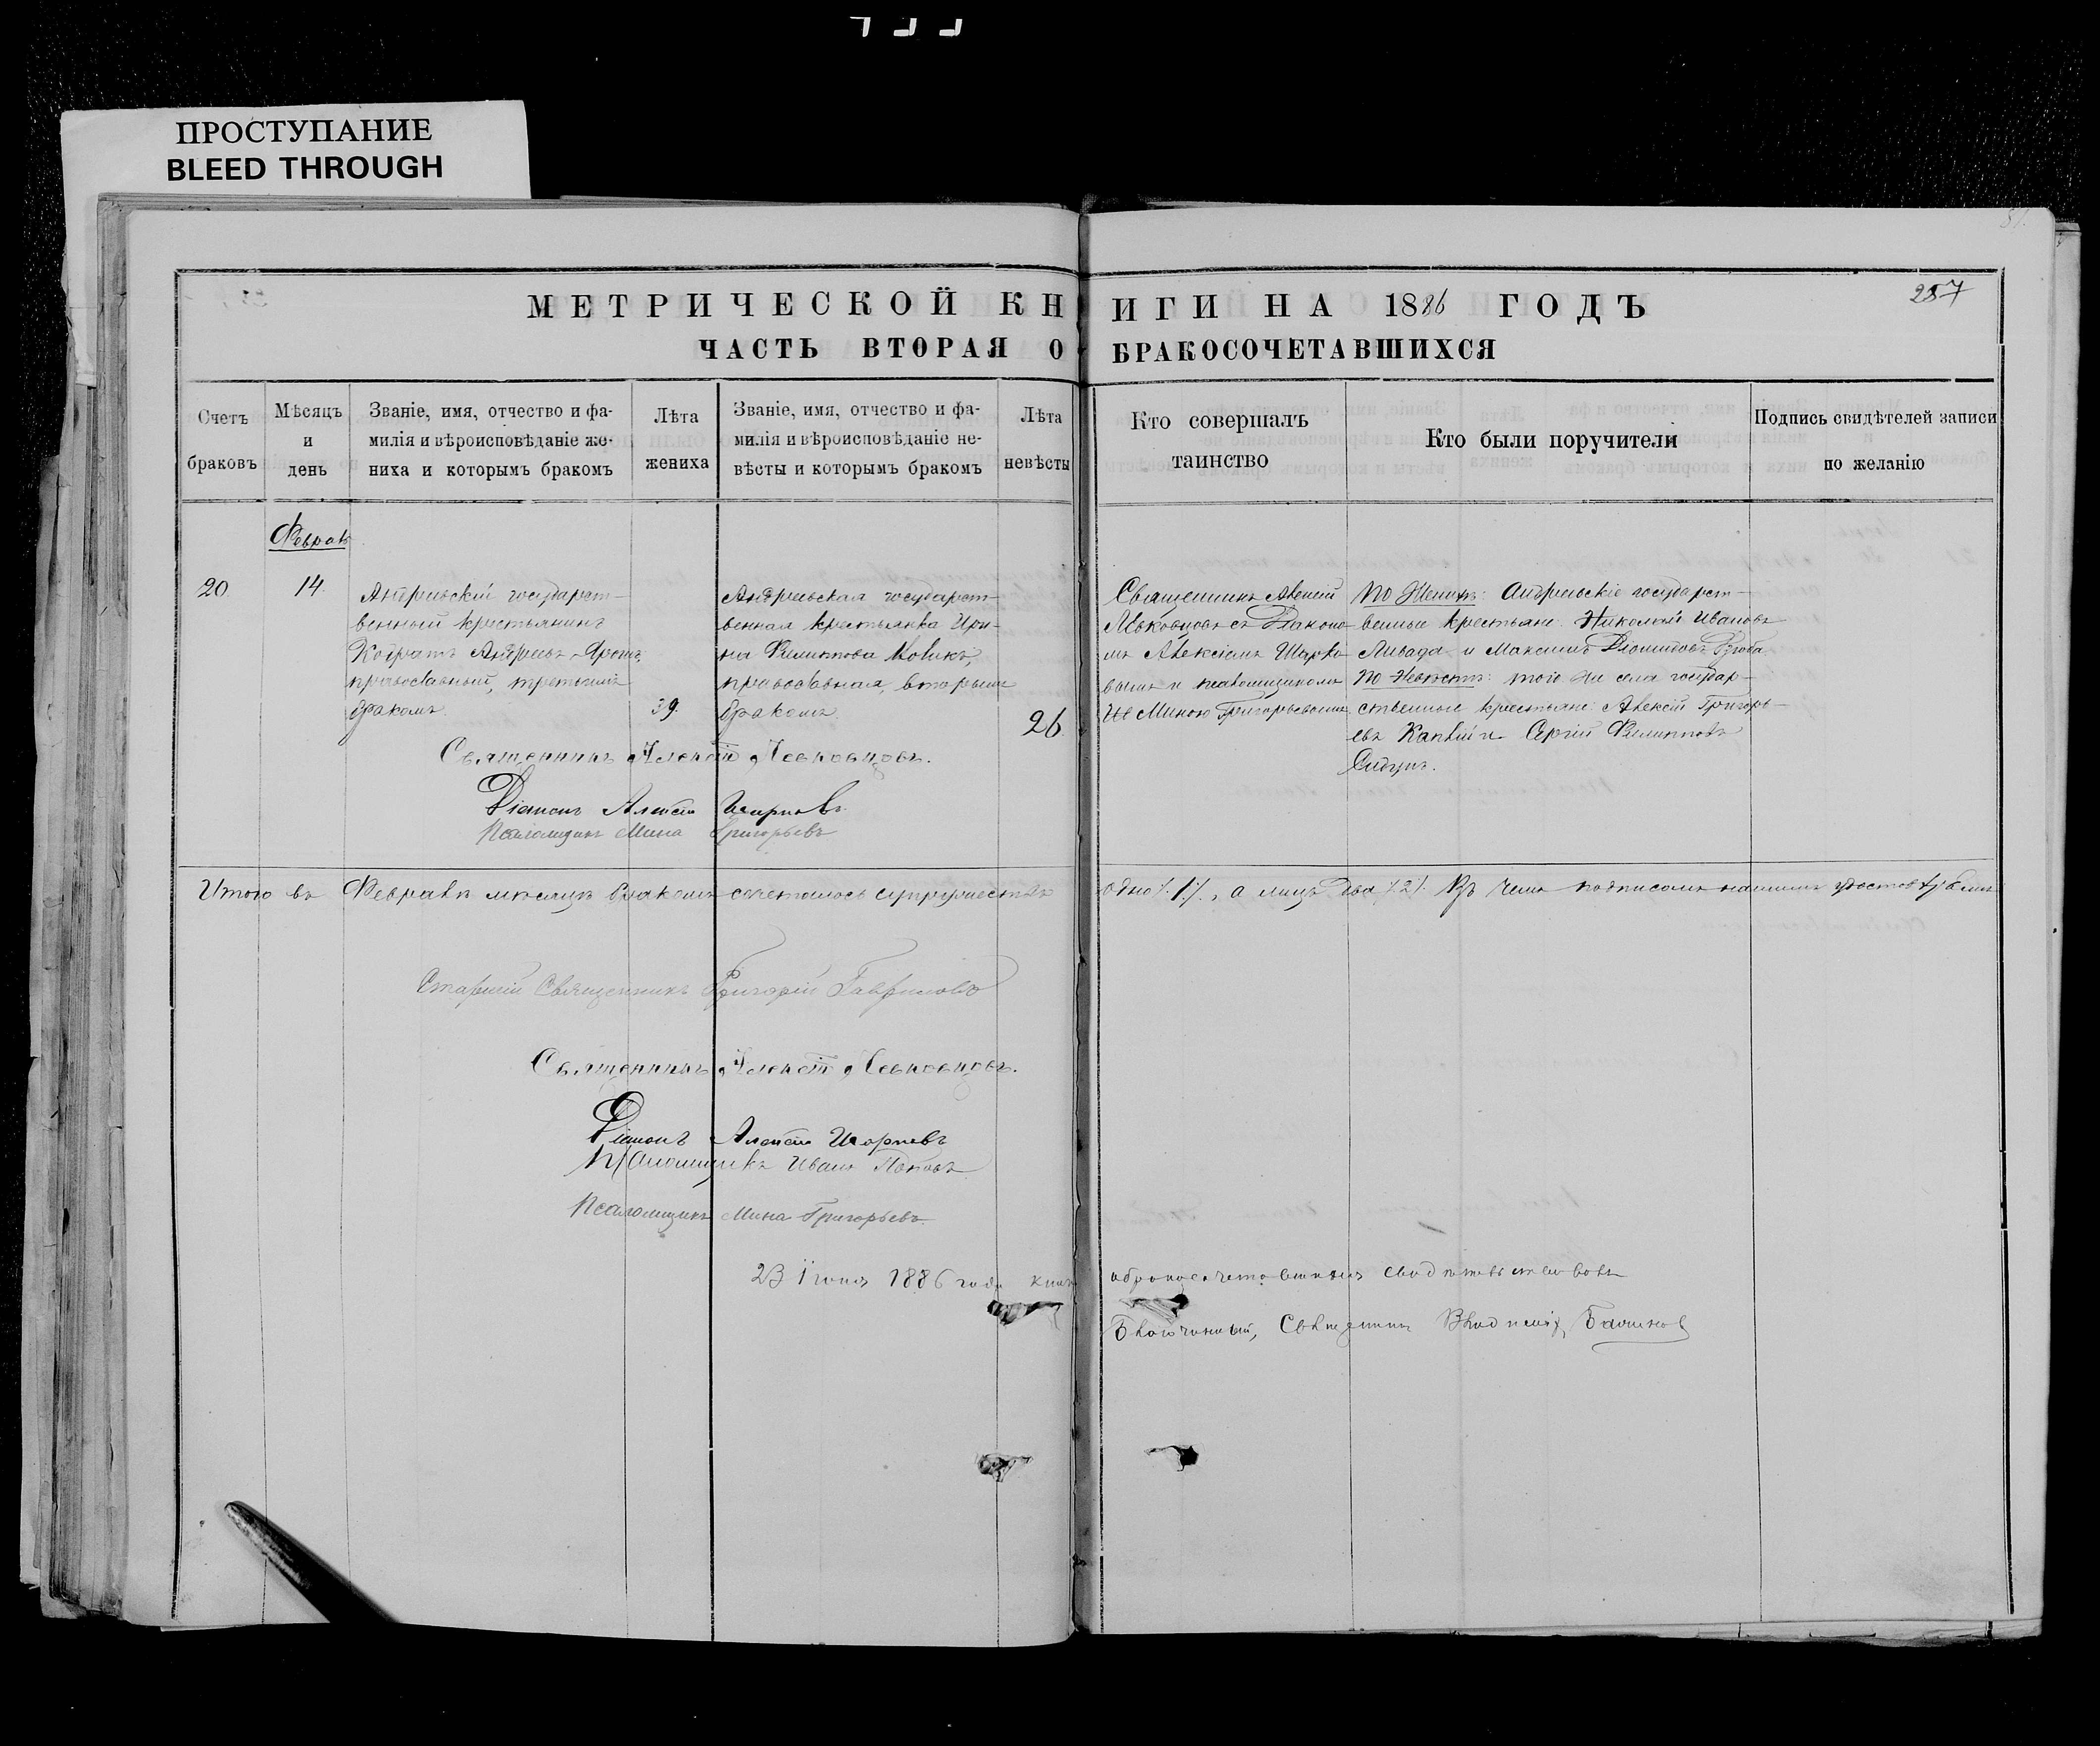 ПРОСТУПАНИЕ
BLEED THROUGH
МЕТРИЧЕСКОЙ КНИГИ НА 1886 ГОДЪ
257
ЧАСТЬ ВТОРАЯ О БРАКОСОЧЕТАВШИХСЯ
Счетъ браковъ
Мѣсяцъ и день
Званіе, имя, отчество и фа-
милія и вѣроисповѣданіе же-
ниха и которымъ бракомъ
Лѣта жениха
Званіе, имя, отчество и фа-
милія и вѣроисповѣданіе не-
вѣсты и которымъ бракомъ
Лѣта невѣсты
Кто совершалъ
таинство
Кто были поручители
Подпись свидѣтелей записи
по желанію
Февраль
20.
14.
государст-
венный крестьянинъ
Андреевъ
православный, третьимъ
бракомъ.
39.
государст-
венная крестьянка Ири-
на Филиппова Новикъ,
православная, вторымъ
бракомъ.
26.
Священникъ Алексій
Левковцовъ съ Діаконо-
мъ Алексіемъ Шарко-
вымъ и псаломщикомъ
Миною Григорьевымъ
По Женихѣ: государст-
венные крестьяне: Николай Ивановъ
Ливада и Максимъ Діомидовъ
По Невѣстѣ: того же села государ-
ственные крестьяне: Алексій Григорь-
евъ и Сергій Филипповъ
Священникъ Алексій Левковцовъ.
Діаконъ Алексій Шарковъ.
Псаломщикъ Мина Григорьевъ
Итого въ Февралѣ мѣсяцѣ бракомъ сочеталось супружествъ одно /.1./., а лицъ два /.2./. Въ чемъ подписомъ нашимъ удостовѣряемъ
Старшій Священникъ Григорій Гавриловъ
Священникъ Алексій Левковцовъ.
Діаконъ Алексій Шарковъ
Псаломщикъ Иванъ Поповъ
Псаломщикъ Мина Григорьевъ
23 Іюня 1886 года книгу о бракосочетавшихся свидѣтельствовалъ
Благочинный, Священникъ